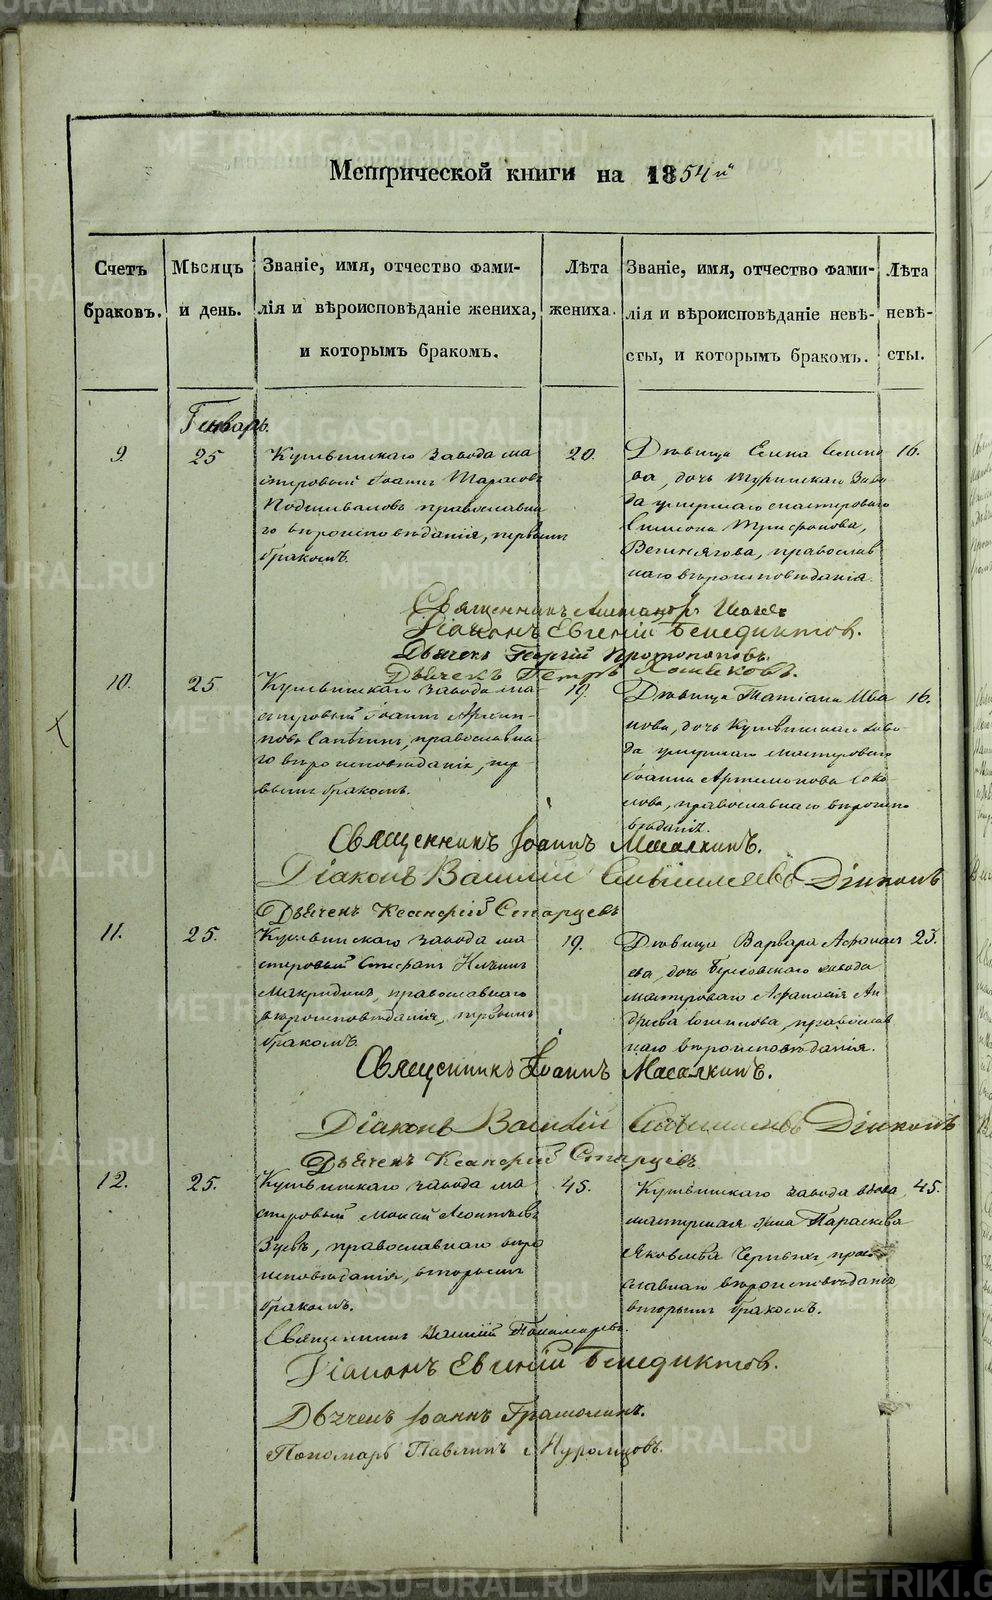 Метрической книги на 1854й
Счетъ браковъ.
Мѣсяцъ и день.
Званіе, имя, отчество фами-
лія и вѣроисповѣданіе жениха,
и которымъ бракомъ.
Лѣта жениха.
Званіе, имя, отчество фами-
лія и вѣроисповѣданіе невѣ-
сты, и которымъ бракомъ.
Лѣта невѣ-
сты.
Генварь.
9.
25
Кушвинскаго завода ма
стеровый Іоаннъ Тарасовъ
Подшиваловъ православна
го вѣроисповѣданія, первымъ
бракомъ.
20.
Дѣвица Елена Симео
ва, дочь Туринскаго заво
да умершаго мастероваго
Симеона Трифонова,
православ
наго вѣроисповѣданія.
16.
Священникъ Александръ
Діаконъ Евгеній Бенедиктовъ.
Дьячекъ Георгій Протопоповъ.
Дьячекъ Петръ
10.
25
Кушвинскаго завода ма-
стеровый Іоаннъ
православна
го вѣроисповѣданія, пер-
вымъ бракомъ.
19.
Дѣвица Татіана Ива
нова, дочь Кушвинскаго заво
да умершаго мастероваго
Іоанна Артемонова Соко
лова, православнаго вѣроиспо
вѣданія.
16.
Священникъ Іоаннъ Масалкинъ.
Діаконъ Василій
Дьячекъ Ксанфій Старцевъ
11.
25.
Кушвинскаго завода ма
стеровый Стефанъ Ильинъ
Макридинъ, православнаго
вѣроисповѣданія, первымъ
бракомъ.
19.
Дѣвица Варвара Афанась
ева, дочь Березовскаго завода
мастероваго Афанасія Ан
дреева православ
наго вѣроисповѣданія.
23.
Священникъ Іоаннъ Масалкинъ.
Діаконъ Василій
Дьячекъ Ксанфій Старцевъ
12.
25.
Кушвинскаго завода ма
стеровый Моисей Леонтьевъ
Зуевъ, православнаго вѣро
исповѣданія, вторымъ
бракомъ.
45.
Кушвинскаго завода вдова
мастерская жена Параскева
Яковлева право
славнаго вѣроисповѣданія
вторымъ бракомъ.
45.
Священникъ Василій Пономаревъ.
Діаконъ Евгеній Бенедиктовъ.
Дьячекъ Іоаннъ Грамолинъ.
Пономарь Павлинъ Муромцовъ.
METRIKI.GASO-URAL.RU